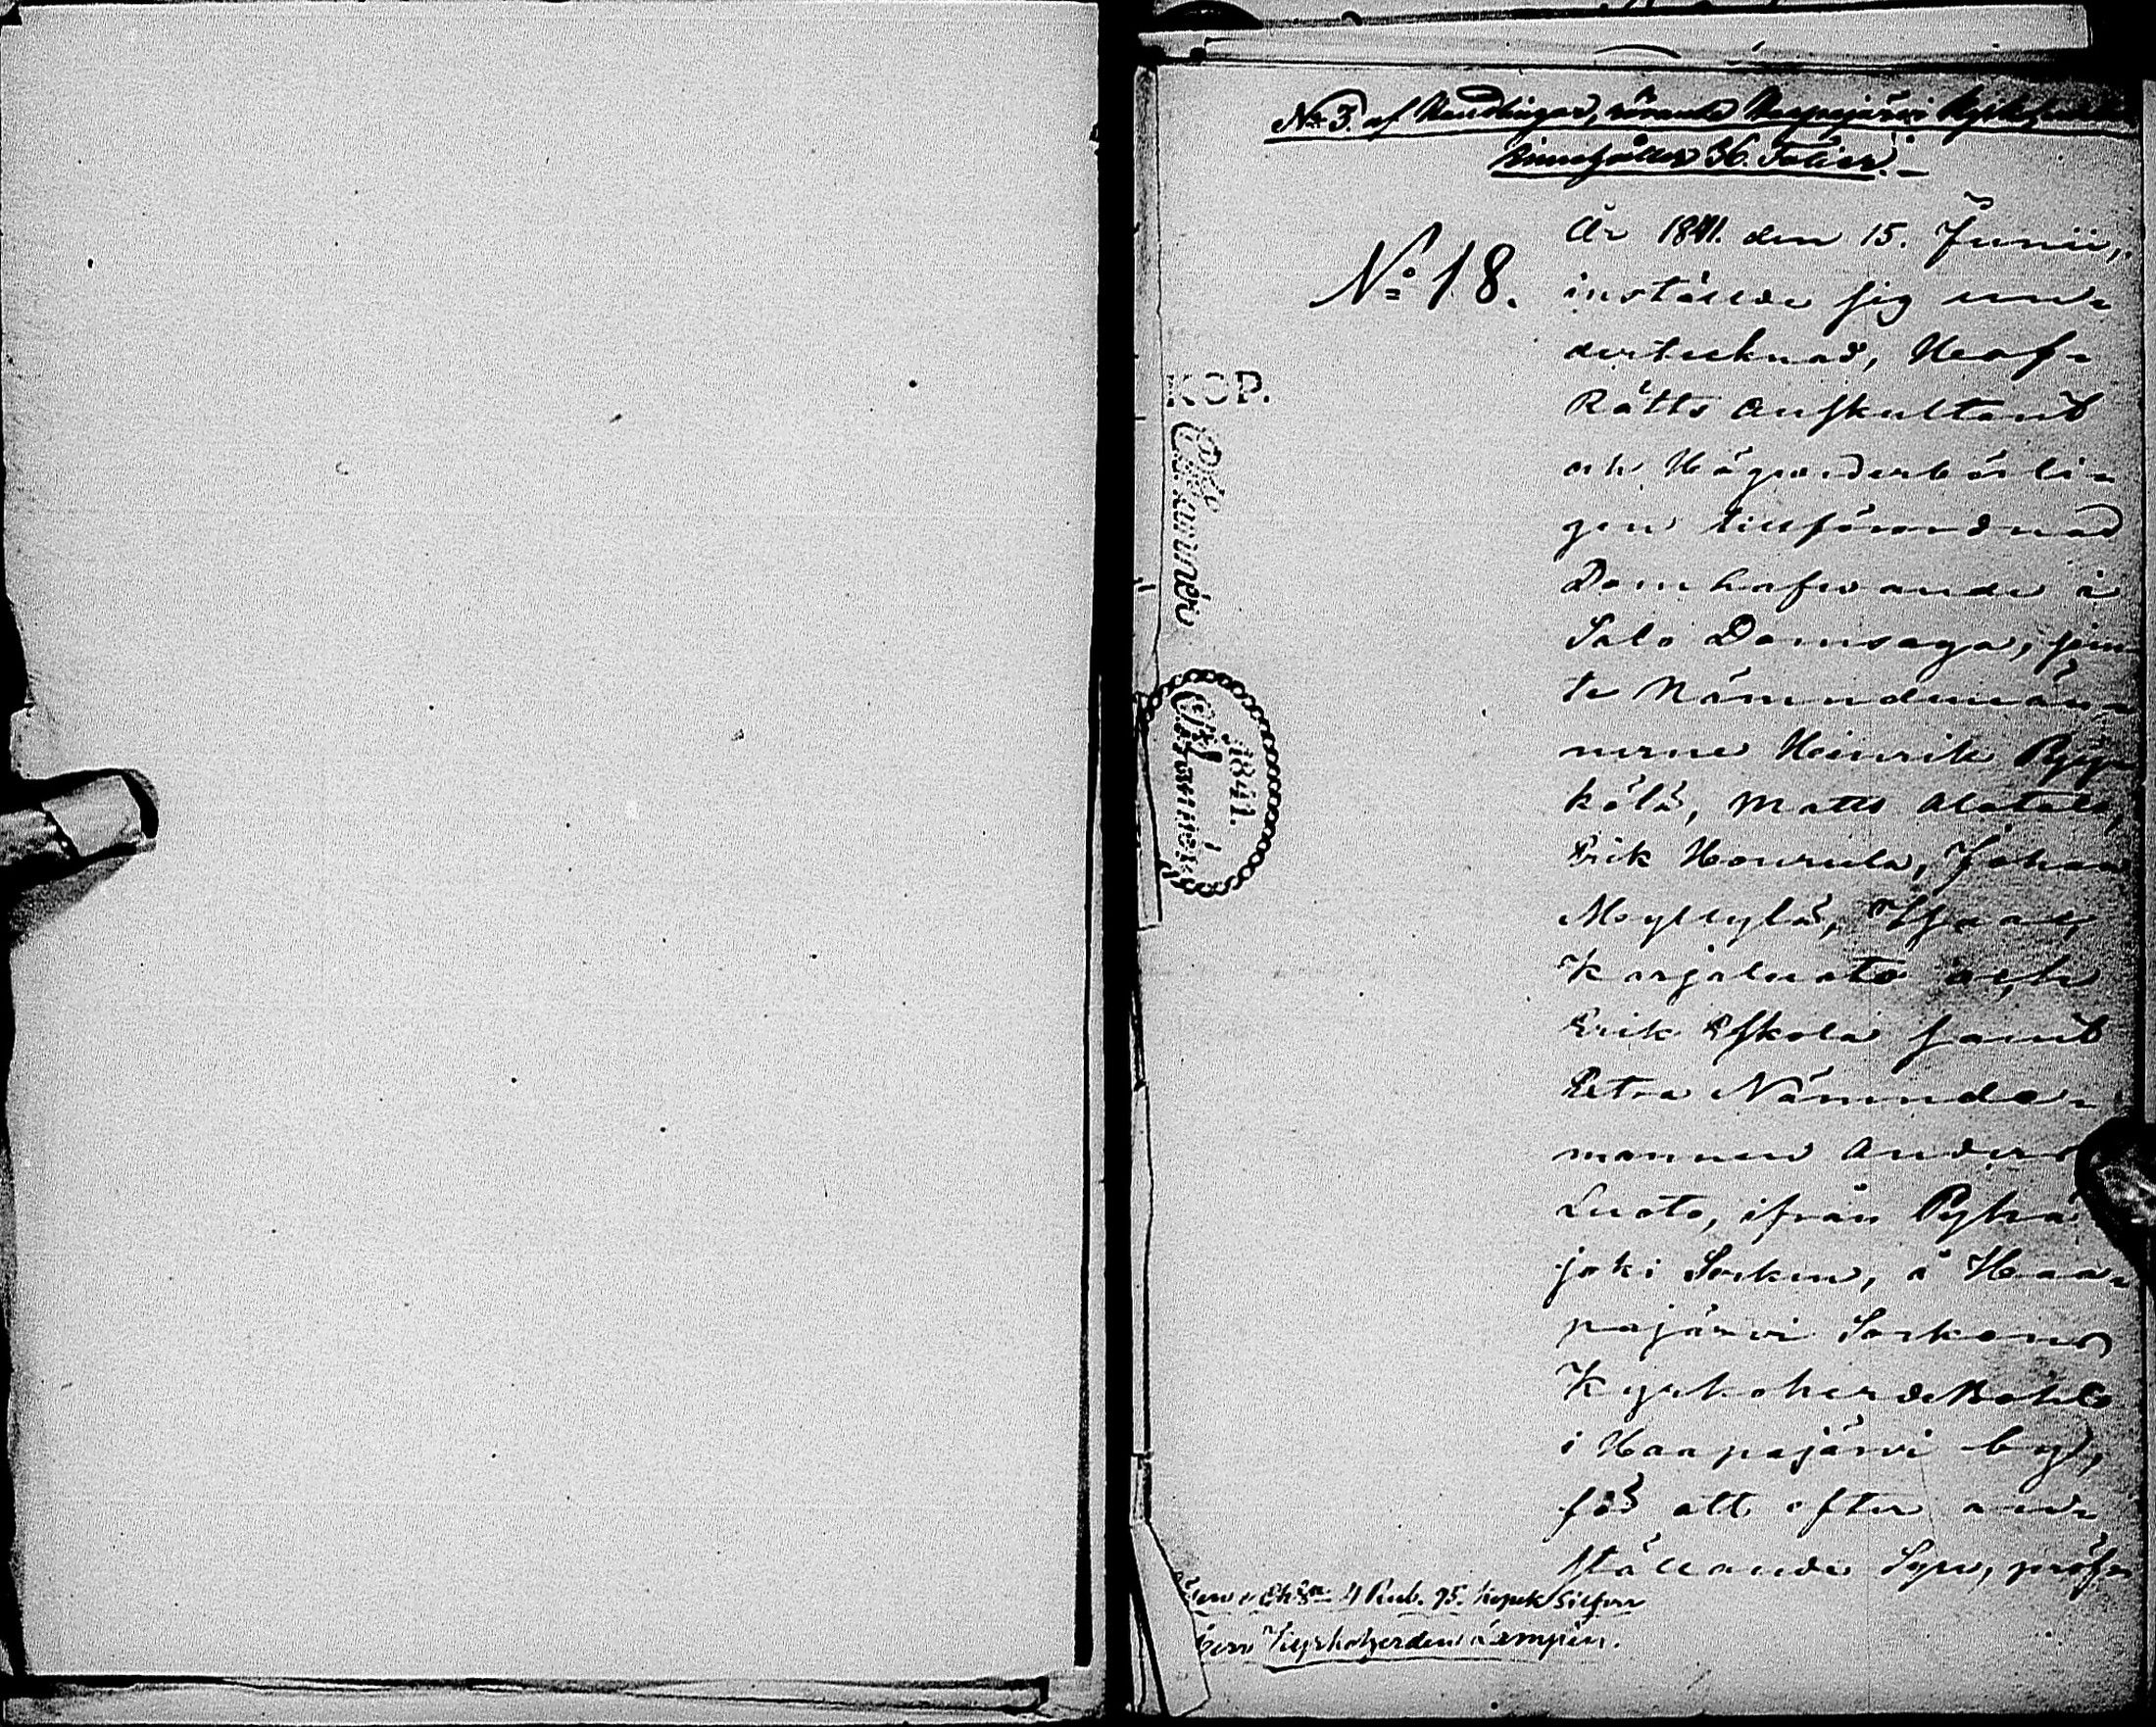 No 3. af Handlingar, rörande Haapajärvi
innehåller 36. Folier.-
No 18.
År 1841. den 15. Junii,
instälde sig un=
dertecknad, Hof=
Rätts Auskultant
och Högvederbörli=
gen tillförordnad
Domhafwande i
Salo Domsaga, jem
te Nämndemän=
nerne Heinrik
kölä, Matts Alatalo,
Erik Hourula, Johan
Myllylä, Isaac
Karjaluoto och
Erik Eskola samt
Extra Nämnde=
mannen Anders
Luoto, ifrån Pyhä
joki Socken, å Haa=
pajärvi Sockens
Kyrkoherde Bohle
i Haapajärvi by,
för att efter an=
ställande Syn, pröfva
KOP.
1841.
4 Rub. 95. kopek Silfver
Kyrkoherden Lampén.